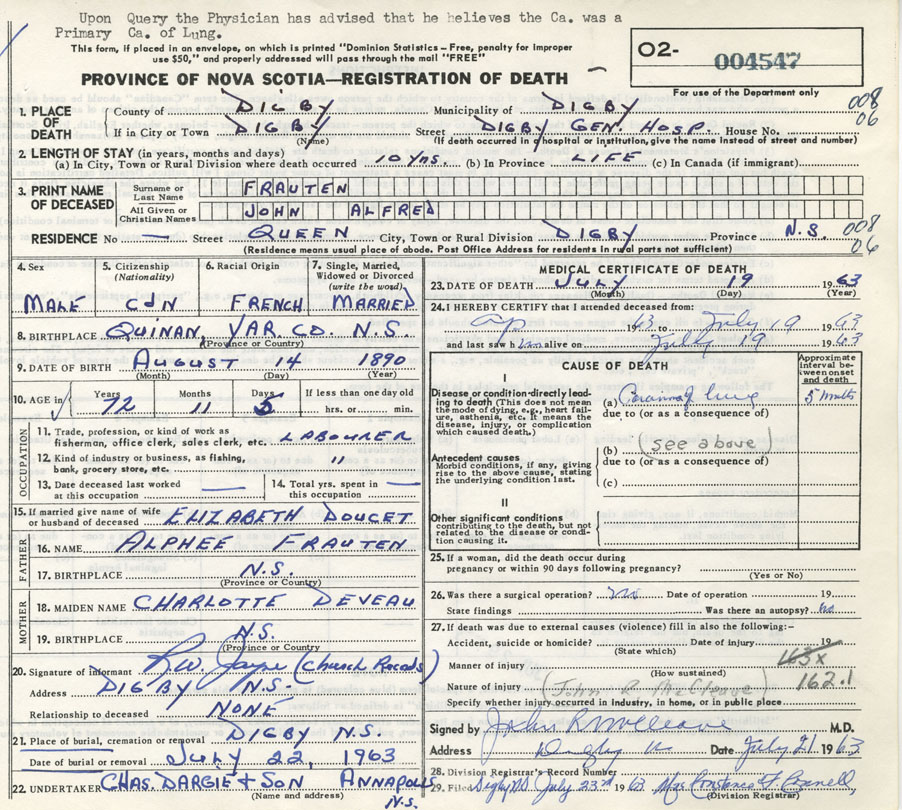 Upon Query the Physician has advised that he believes the Ca. was a
Primary Ca. of Lung.
This form, if placed in an envelope, on which is printed "Dominion Statistics – Free, penalty for improper
use $50," and properly addressed will pass through the mail "FREE"
O2- 004547
PROVINCE OF NOVA SCOTIA—REGISTRATION OF DEATH
For use of the Department only
1. PLACE OF DEATH County of DIGBY Municipality of DIGBY 008
If in City or Town DIGBY Street DIGBY GEN. HOSP. House No. 06
(Name) (If death occurred in a hospital or institution, give the name instead of street and number)
2. LENGTH OF STAY (in years, months and days)
(a) In City, Town or Rural Division where death occurred 10 yrs. (b) In Province LIFE (c) In Canada (if immigrant)
3. PRINT NAME OF DECEASED Surname or Last Name FRAUTEN
All Given or Christian Names JOHN ALFRED
RESIDENCE No — Street QUEEN City, Town or Rural Division DIGBY Province N.S. 008 06
(Residence means usual place of abode. Post Office Address for residents in rural parts not sufficient)
4. Sex MALE
5. Citizenship (Nationality) CDN
6. Racial Origin FRENCH
7. Single, Married, Widowed or Divorced (write the word) MARRIED
8. BIRTHPLACE QUINAN, YAR. CO. N.S.
(Province or Country)
9. DATE OF BIRTH AUGUST 14 1890
(Month) (Day) (Year)
10. AGE in Years 72 Months 11 Days 5 If less than one day old
hrs. or min.
OCCUPATION
11. Trade, profession or kind of work as
fisherman, office clerk, sales clerk, etc. LABOURER
12. Kind of industry or business, as fishing,
bank, grocery store, etc. "
13. Date deceased last worked at this occupation —
14. Total yrs. spent in this occupation —
15. If married give name of wife
or husband of deceased ELIZABETH DOUCET
FATHER
16. NAME ALPHEE FRAUTEN
17. BIRTHPLACE N.S.
(Province or Country)
MOTHER
18. MAIDEN NAME CHARLOTTE DEVEAU
19. BIRTHPLACE N.S.
(Province or Country
20. Signature of informant R.W. (Church Records)
Address DIGBY N.S.
Relationship to deceased NONE
21. Place of burial, cremation or removal DIGBY N.S.
Date of burial or removal JULY 22, 1963
22. UNDERTAKER CHAS. DARGIE & SON ANNAPOLIS
(Name and address) N.S.
MEDICAL CERTIFICATE OF DEATH
23. DATE OF DEATH JULY 19 1963
(Month) (Day) (Year)
24. I HEREBY CERTIFY that I attended deceased from:
ap 1963 to July 19 1963
and last saw him alive on July 19 1963
CAUSE OF DEATH
Approximate interval between onset and death
I
Disease or condition directly leading to death (This does not mean
the mode of dying, e.g., heart failure, asthenia, etc. It means the
disease, injury, or complication
which caused death.)
(a) lung 5 mnths
due to (or as a consequence of)
Antecedent causes
Morbid conditions, if any, giving
rise to the above cause, stating
the underlying condition last.
(b) (see above)
due to (or as a consequence of)
(c)
II
Other significant conditions
contributing to the death, but not
related to the disease or condition causing it.
25. If a woman, did the death occur during
pregnancy or within 90 days following pregnancy?
(Yes or No)
26. Was there a surgical operation? no Date of operation 19
State findings Was there an autopsy? No
27. If death was due to external causes (violence) fill in also the following:–
Accident, suicide or homicide? Date of injury 19
(State which)
Manner of injury 163X
(How sustained)
Nature of injury (John R. McCleave) 162.1
Specify whether injury occurred in industry, in home, or in public place
Signed by John R McCleave M.D.
Address Digby Date July 21 1963
28. Division Registrar's Record Number
29. Filed Digby July 23rd 1963 Mrs Constance
(Division Registrar)